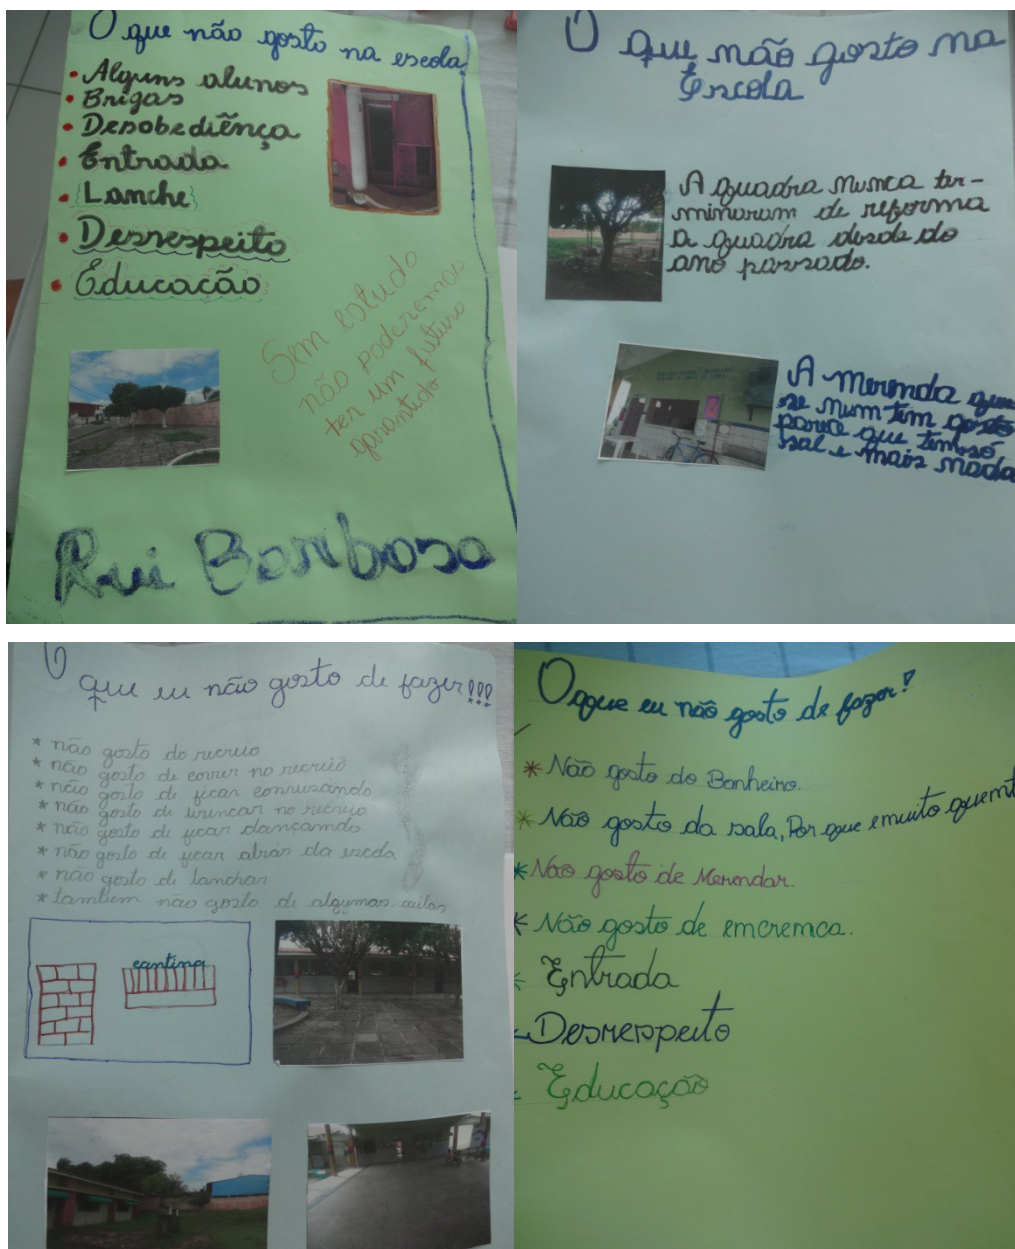 O que não gosto na escola
• Alguns alunos
• Brigas
• Desobediênça
• Entrada
• Lanche
• Desrespeito
• Educação
Sem estudo
não poderemos
ter um futuro
garantido
Rui Barbosa
O que não gosto na
Escola
A quadra nunca ter-
minaram de reforma
a quadra desde do
ano passado.
A merenda que
se num tem gosto
parece que tem só
sal e mais nada
O que eu não gosto de fazer!!!
* não gosto do recreio
* não gosto de correr no recreio
* não gosto de ficar conversando
* não gosto de brincar no recreio
* não gosto de ficar dançando
* não gosto de ficar atrás da escola
* não gosto de lanchar
* tambem não gosto de algumas aulas
cantina
O que eu não gosto de fazer!
* Não gosto do Banheiro.
* Não gosto da sala, Por que e muito quent
* Não gosto de Merendar.
* Não gosto de emcremca.
Entrada
Desrespeito
Educação